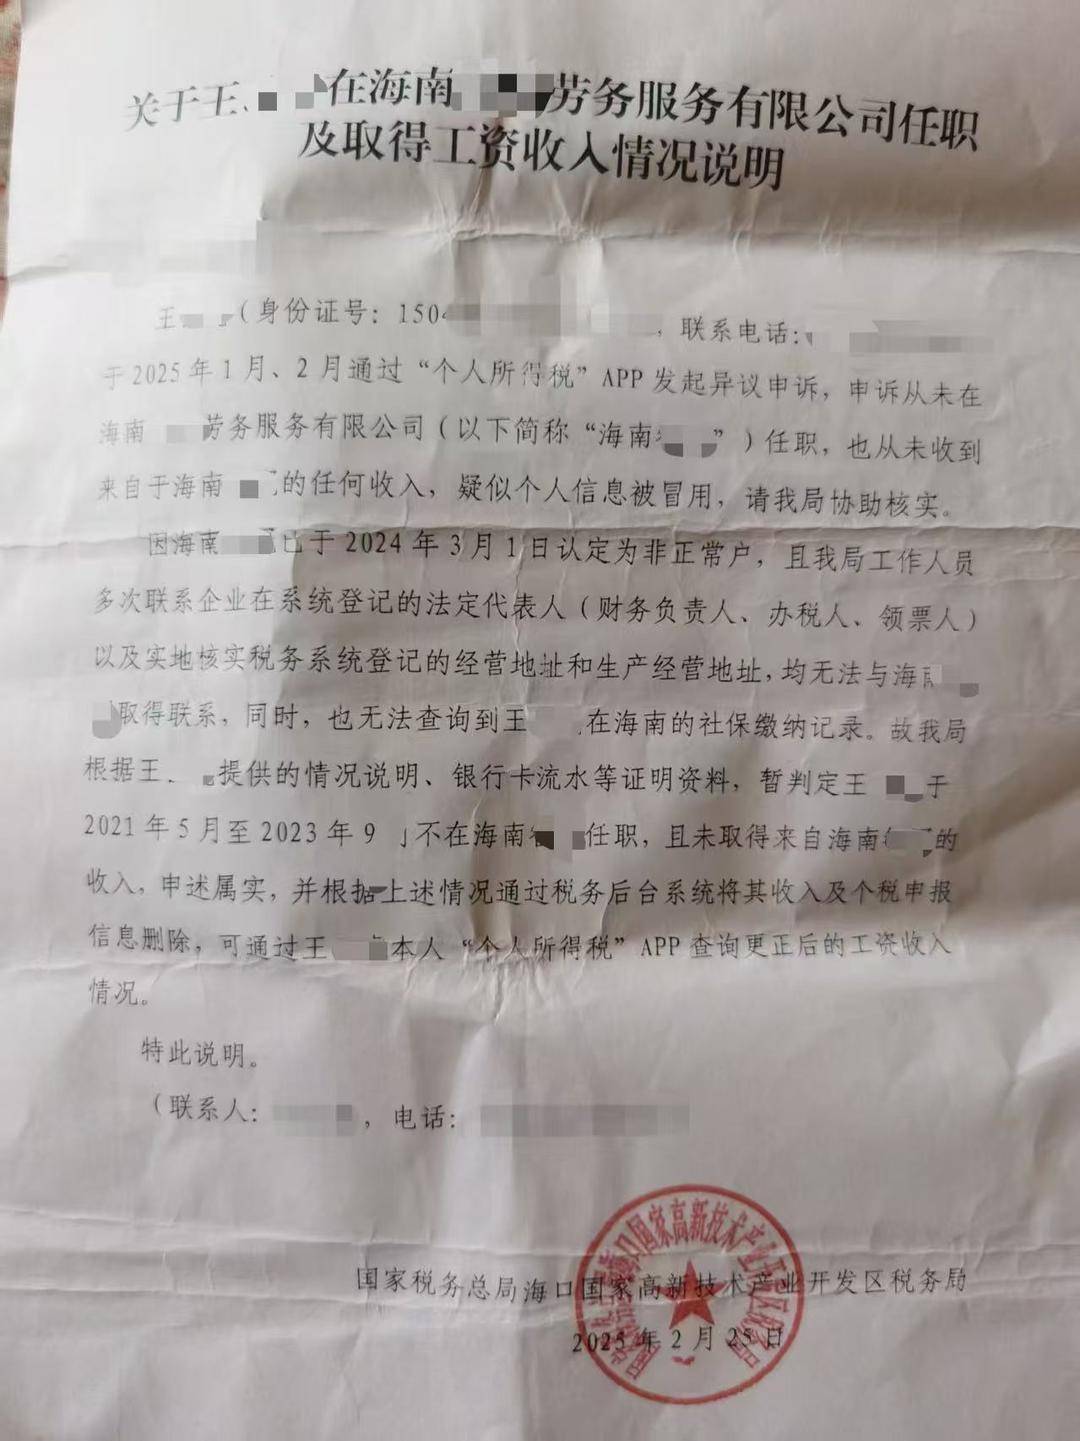 关于王 在海南 劳务服务有限公司任职
及取得工资收入情况说明
王 （身份证号：1504 ，联系电话：
于2025年1月、2月通过“个人所得税”APP发起异议申诉，申诉从未在
海南 劳务服务有限公司（以下简称“海南 ”）任职，也从未收到
来自于海南 的任何收入，疑似个人信息被冒用，请我局协助核实。
因海南 已于2024年3月1日认定为非正常户，且我局工作人员
多次联系企业在系统登记的法定代表人（财务负责人、办税人、领票人）
以及实地核实税务系统登记的经营地址和生产经营地址，均无法与海南
取得联系，同时，也无法查询到王 在海南的社保缴纳记录。故我局
根据王 提供的情况说明、银行卡流水等证明资料，暂判定王 于
2021年5月至2023年9 不在海南 任职，且未取得来自海南 的
收入，申述属实，并根据上述情况通过税务后台系统将其收入及个税申报
信息删除，可通过王 本人“个人所得税”APP查询更正后的工资收入
情况。
特此说明。
（联系人： ，电话：
国家税务总局海口国家高新技术产业开发区税务局
2025年2月25日